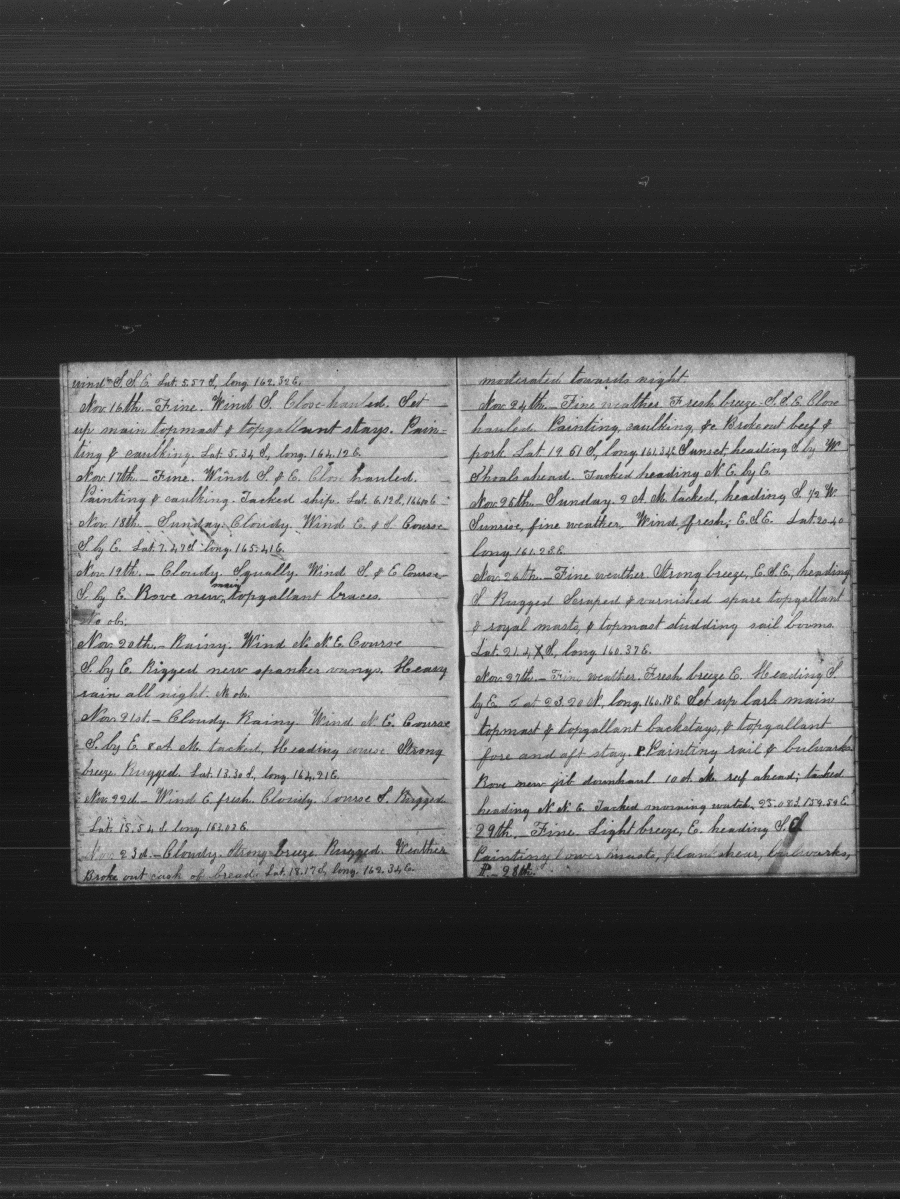 wind S.S.E. Lat. 5.57 S, long. 162.32 E.
Nov. 16th. – Fine. Wind S. Close hauled. Set
up main topmast & topgallant stays. Pain-
ting & caulking. Lat. 5.34 S, long. 164.12 E.
Nov. 17th. – Fine. Wind S. & E. Close hauled.
Painting & caulking. Tacked ship. Lat. 6.12 S.
Nov. 18th. – Sunday. Cloudy. Wind E. & S. Course
S. by E. Lat. 7.47 S long. 165.41 E.
Nov. 19th. – Cloudy. Squally. Wind S. & E. Course
S. by E. Rove new main topgallant braces.
No obs.
Nov. 20th. – Rainy. Wind N. N. E. Course
S. by E. Rigged new spanker vangs. Heavy
rain all night. No ob.
Nov. 21st. – Cloudy. Rainy. Wind N. E. Course
S. by E. 8 A. M. tacked, Heading course Strong
breeze Rugged. Lat. 13.30 S, long 164.21 E.
Nov. 22d. – Wind E. fresh. Cloudy. Course S. Rugged
Lat. 15.54 S. long. 163.03 E.
Nov. 23d. – Cloudy. Strong breeze Rugged. Weather
Broke out cask of bread. Lat. 18.17 S, long. 162.34 E.
moderated towards night.
Nov. 24th. – Fine weather. Fresh breeze S.S.E. Close
hauled. Painting, caulking, &c. Broke out beef &
pork Lat. 19.51 S, long 161.34 E Sunset, heading S. by W
Shoals ahead. Tacked heading N. E. by E.
Nov. 25th. – Sunday. 2 A. M. tacked, heading S. 1/2 W.
Sunrise, fine weather. Wind fresh; E.S.E. Lat. 20.40
long 161.28 E.
Nov. 26th. – Fine weather. Strong breeze, E.S.E., heading
S. Rugged Scraped & varnished spare topgallant
& royal masts, & topmast studding sail booms.
Lat. 21. S, long 160.37 E.
Nov. 27th. – Fine weather. Fresh breeze E. Heading S.
by E. Lat 23.20 N, long. 160.18 E Set up larb main
topmast & topgallant backstays, & topgallant
fore and aft stay. P. Painting rail & bulwarks
Rove new jib downhaul 10 A. M. reef ahead; tacked
heading N. N. E. Tacked morning watch. 25.08 S. 159.59 E
29th., Fine. Light breeze, E. heading S.
Painting lower masts, plankshear, bulwarks,
P – 28th.